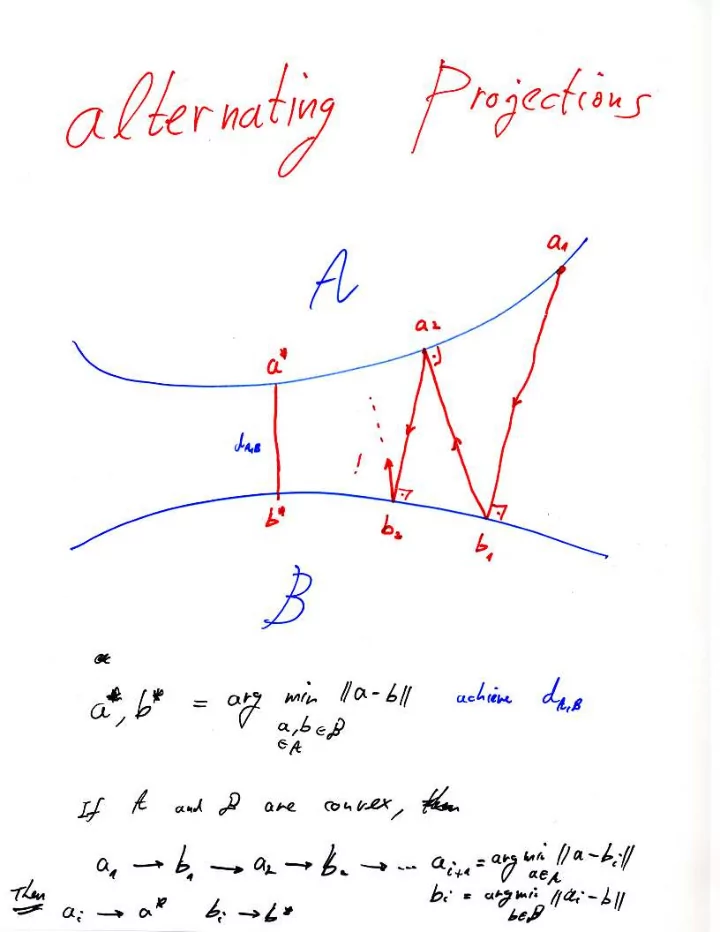 alternating Projections
a₁
A
a₂
a*
d_{A,B}
!
b*
b₂
b₁
B
a*, b* = arg min ||a-b|| achieve d_{A,B}
a,b∈B
∈A
If A and B are convex,
a₁ → b₁ → a₂ → b₂ → ... a_{i+1} = arg min ||a-b_i||
a∈A
b_i = argmin ||a_i-b||
b∈B
Then a_i → a* b_i → b*